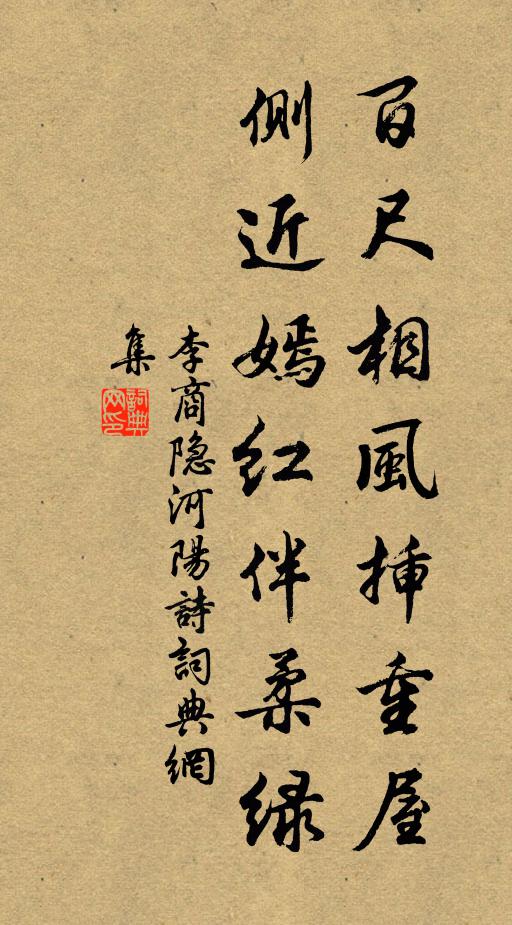 百尺相風插重屋
側近嫣紅伴柔綠
李商隐河陽詩詞典網
集
詞典網印